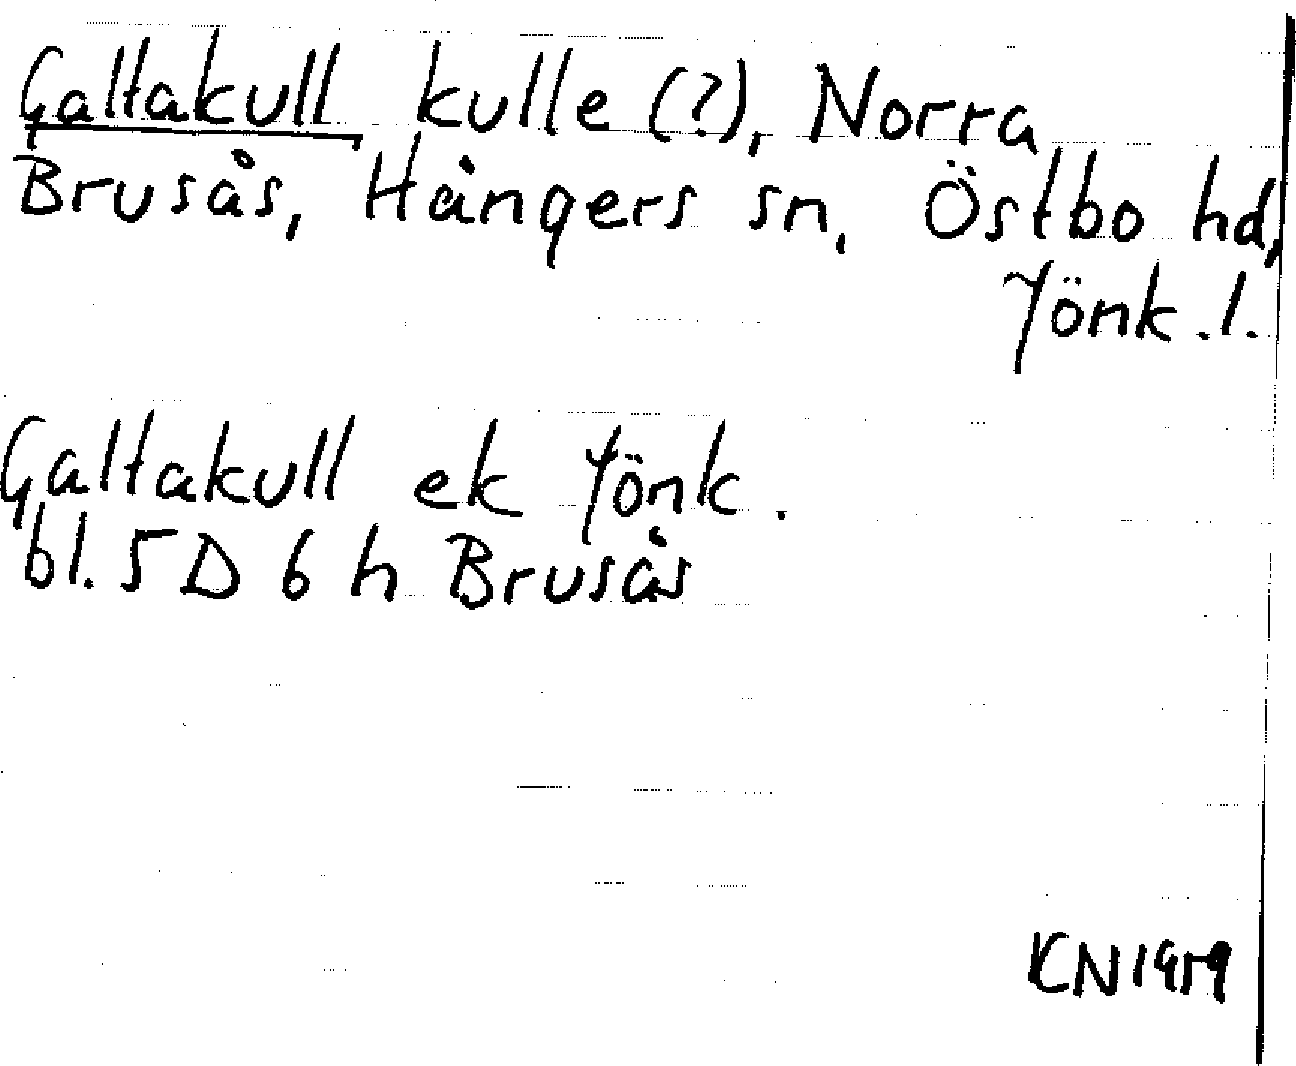 Galtakull kulle (?), Norra
Brusås, Hångers sn, Östbo hd,
Jönk.l.
Galtakull ek Jönk.
bl. 5 D 6 h Brusås
KN